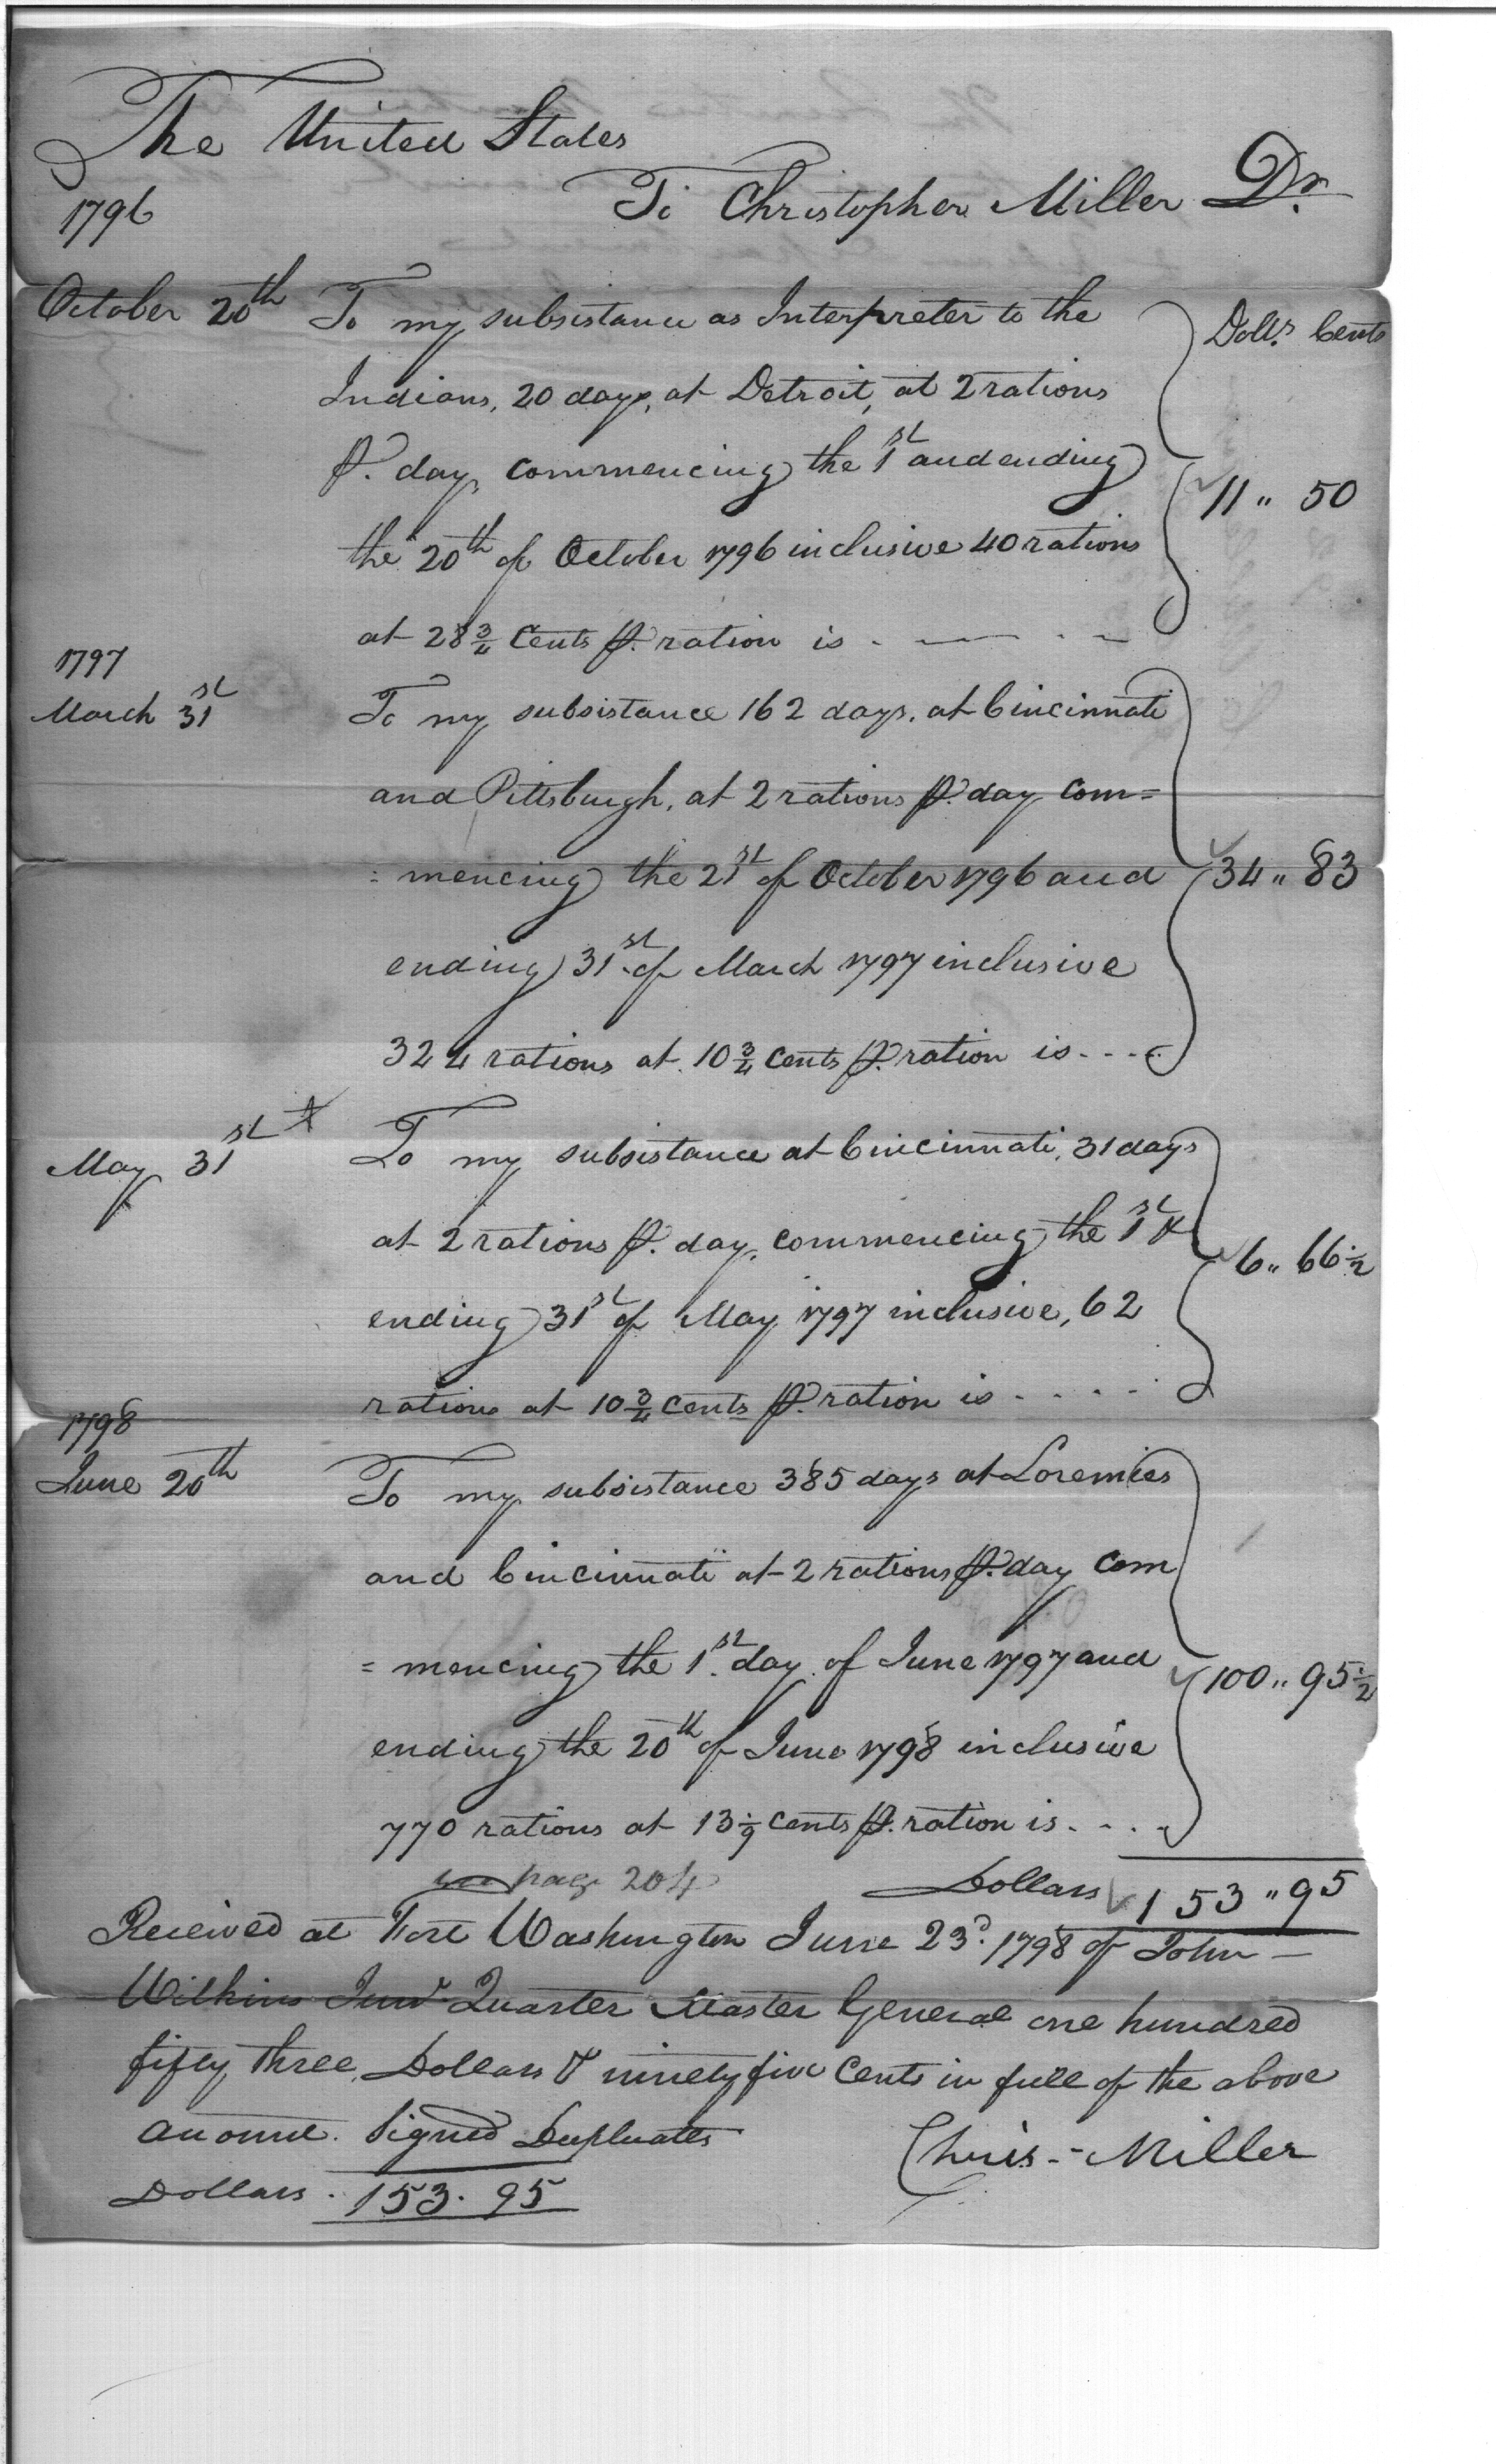 The United States
1796
To Christopher Miller Dr.
October 20th To my subsistance as Interpreter to the
Dolls. Cents
Indians, 20 days, at Detroit, at 2 rations
℔. day, commencing the 1st and ending
11 " 50
the 20th of October 1796 inclusive 40 rations
at 28 3/4 Cents ℔. ration is . — . —
1797
March 31st To my subsistance 162 days, at Cincinnati
and Pittsburgh, at 2 rations ℔. day com=
=mencing the 21st of October 1796 and 34 " 83
ending 31st of March 1797 inclusive
324 rations at 10 3/4 Cents ℔. ration is - - - -
May 31st To my subsistance at Cincinnati, 31 days
at 2 rations ℔. day, commencing the 1st &
6 " 66 1/2
ending 31st of May 1797 inclusive, 62
rations at 10 3/4 Cents ℔. ration is - - - -
1798
June 20th To my subsistance 385 days at Loremies
and Cincinnati at 2 rations ℔. day Com
=mencing the 1st. day of June 1797 and 100 " 95 1/2
ending the 20th of June 1798 inclusive
770 rations at 13 1/9 Cents ℔. ration is - - - -
page 204
Dollars 153 " 95
Received at Fort Washington June 23d. 1798 of John —
Wilkins Junr Quarter Master General one hundred
fifty three Dollars & ninety five Cents in full of the above
amount. Signed Duplicates
Chris - Miller
Dollars . 153 . 95